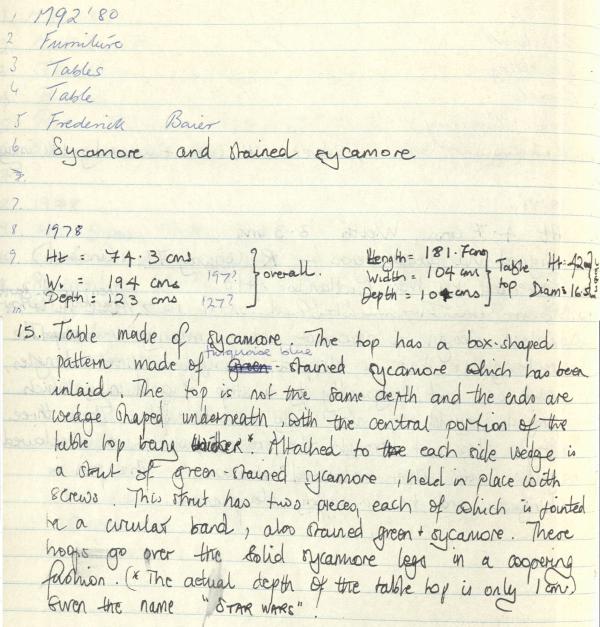 1 M92'80
2 Furniture
3 Tables
4 Table
5 Frederick Baier
6 Sycamore and stained sycamore
7.
7.
8 1978
9. Ht = 74.3 cms
W. = 194 cms 197?
Depth = 123 cms 127?
overall.
Length = 181.7cms
Width = 104 cm
Depth = 10 cms
Table top
Ht = 42cm
Diam = 16.5
15. Table made of sycamore. The top has a box-shaped
pattern made of green turquoise blue - stained sycamore which has been
inlaid. The top is not the same depth and the ends are
wedge shaped underneath, with the central portion of the
table top being *. Attached to the each side wedge is
a strut of green-stained sycamore, held in place with
screws. This strut has two pieces, each of which is jointed
to a circular band, also stained green + sycamore. These
hoops go over the solid sycamore legs in a coopering
fashion. (* The actual depth of the table top is only 1 cm.)
Given the name "STAR WARS".